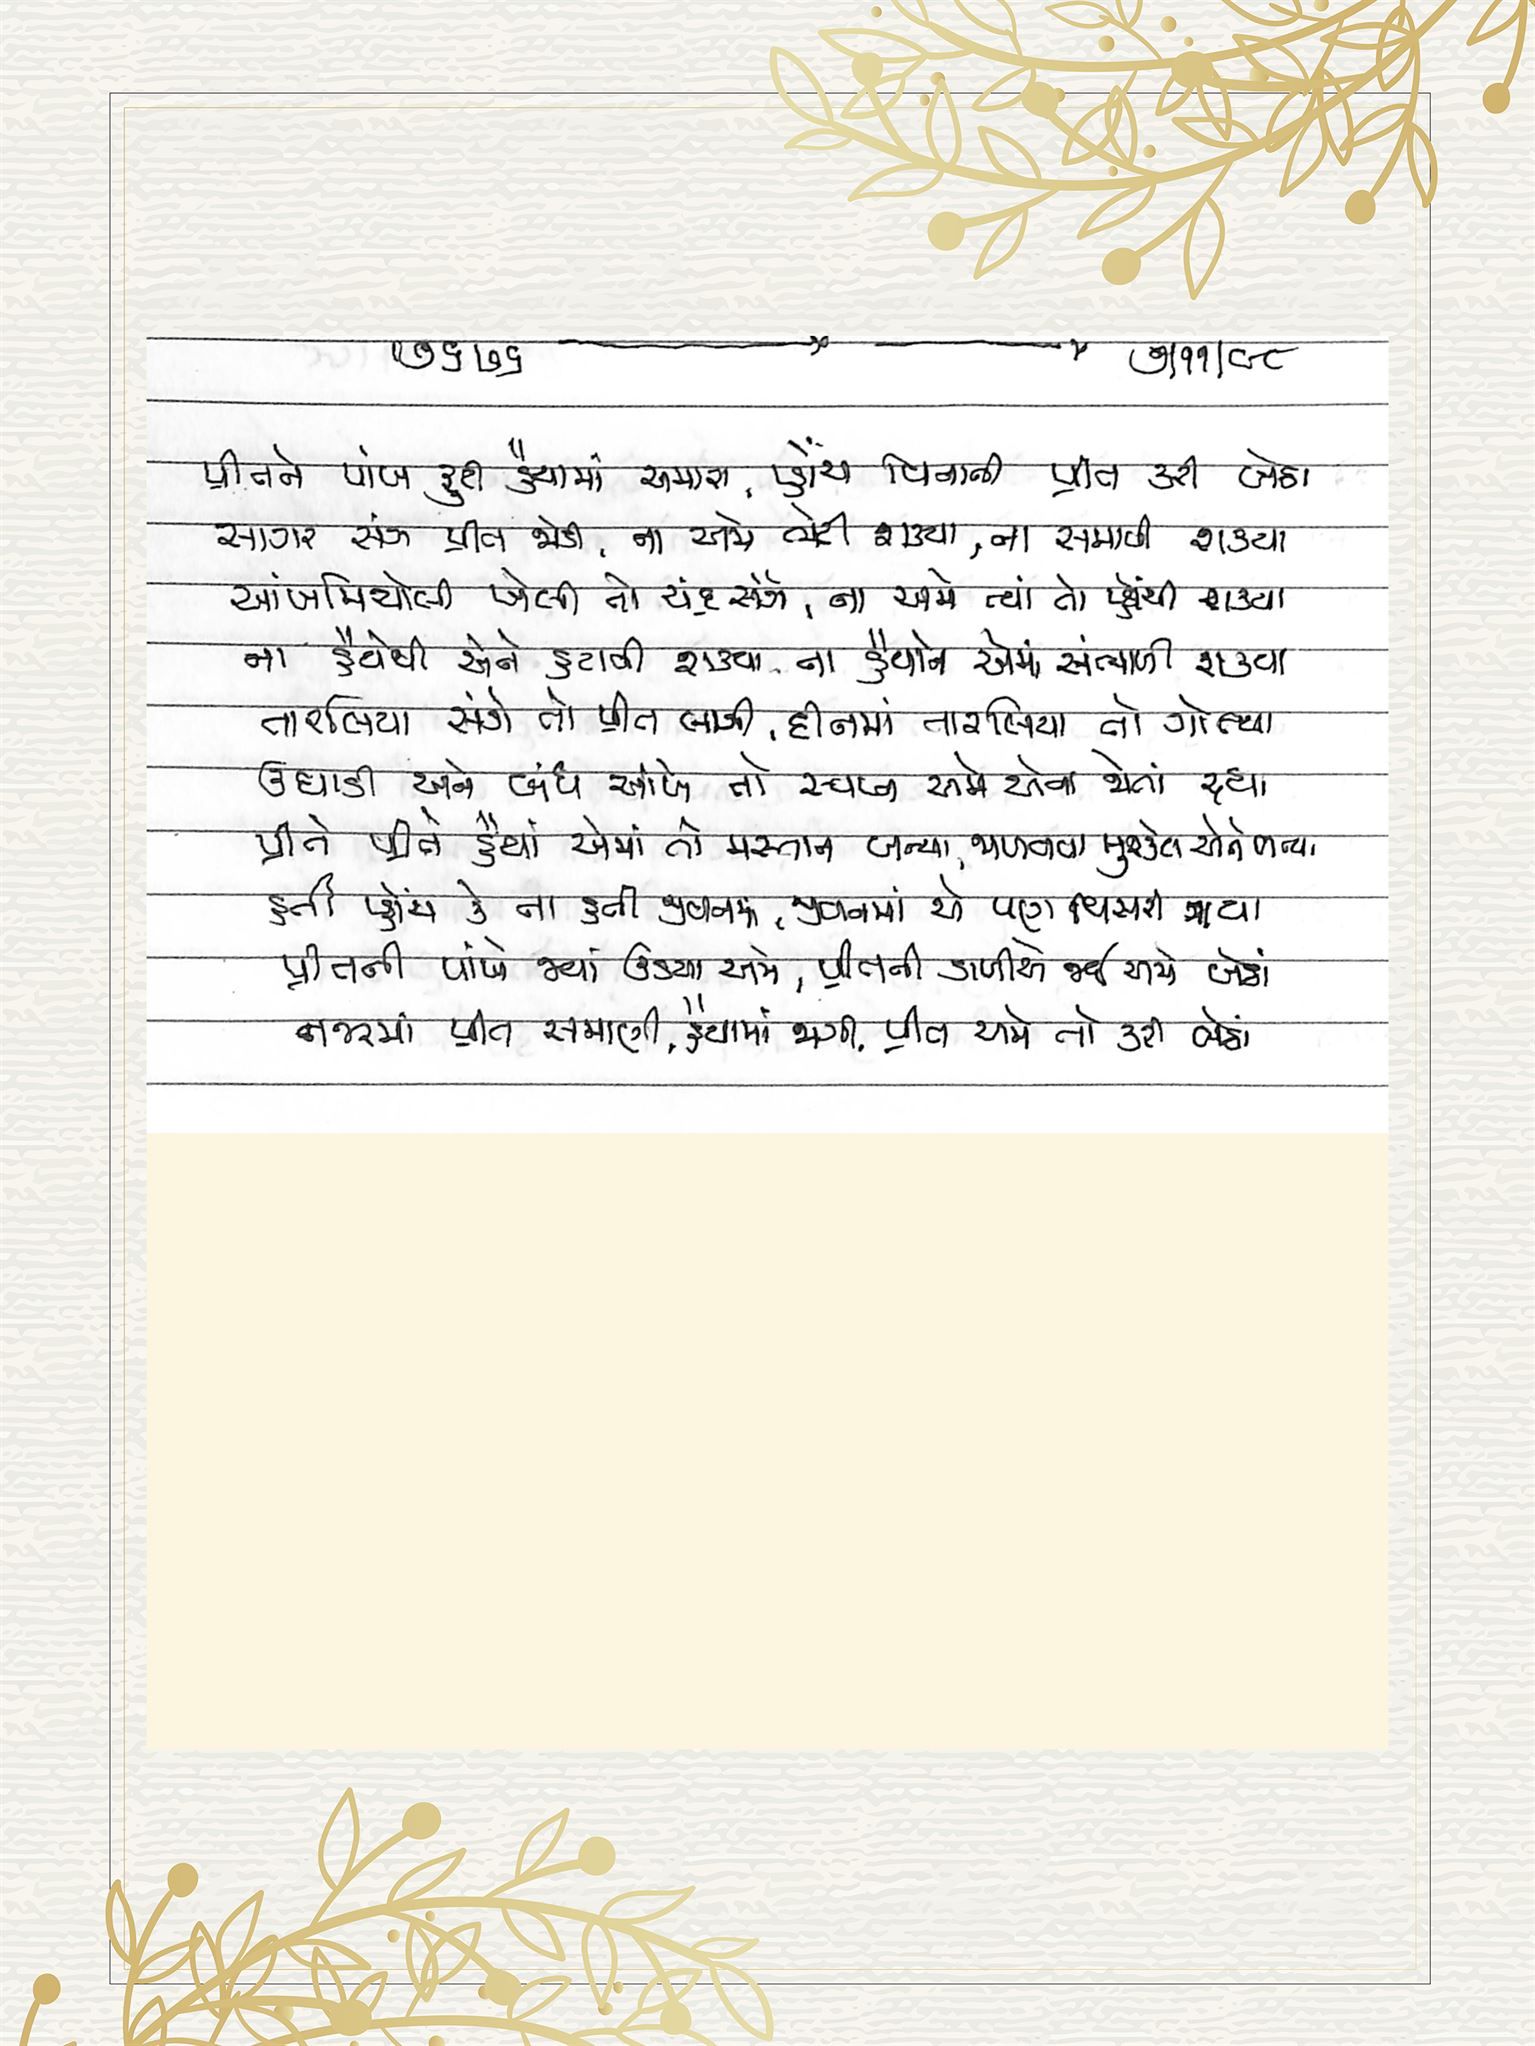 ૭૬૭૬ ૭/૧૧/૯૮
પ્રીતને પાંખ ફુટી હૈયામાં અમારા, પહોંચ વિનાની પ્રીત કરી બેઠા
સાગર સંગ પ્રીત જોડી, ના અમે ભેટી શક્યા, ના સમાવી શક્યા
આંખમિચોલી ખેલી તો ચંદ્ર સંગે, ના અમે ત્યાં તો પહોંચી શક્યા
ના હૈયેથી એને હટાવી શક્યા, ના હૈયાને એમાં સંભાળી શક્યા
તારલિયા સંગે તો પ્રીત લાગી, દીનમાં તારલિયા તો ગોત્યા
ઉઘાડી અને બંધ આંખે તો સ્વપ્ન અમે એના જોતાં રહ્યા
પ્રીતે પ્રીતે હૈયાં એમાં તો મસ્તાન બન્યા, જાળવવા મુશ્કેલ એને બન્યા
હતી પહોંચ કે ના હતી જીવનમાં, જીવનમાં એ પણ વિસરી ગયા
પ્રીતની પાંખે જ્યાં ઉડયા અમે, પ્રીતની ડાળીએ જઈ અમે બેઠાં
નજરમાં પ્રીત સમાણી, હૈયામાં જાગી, પ્રીત અમે તો કરી બેઠાં